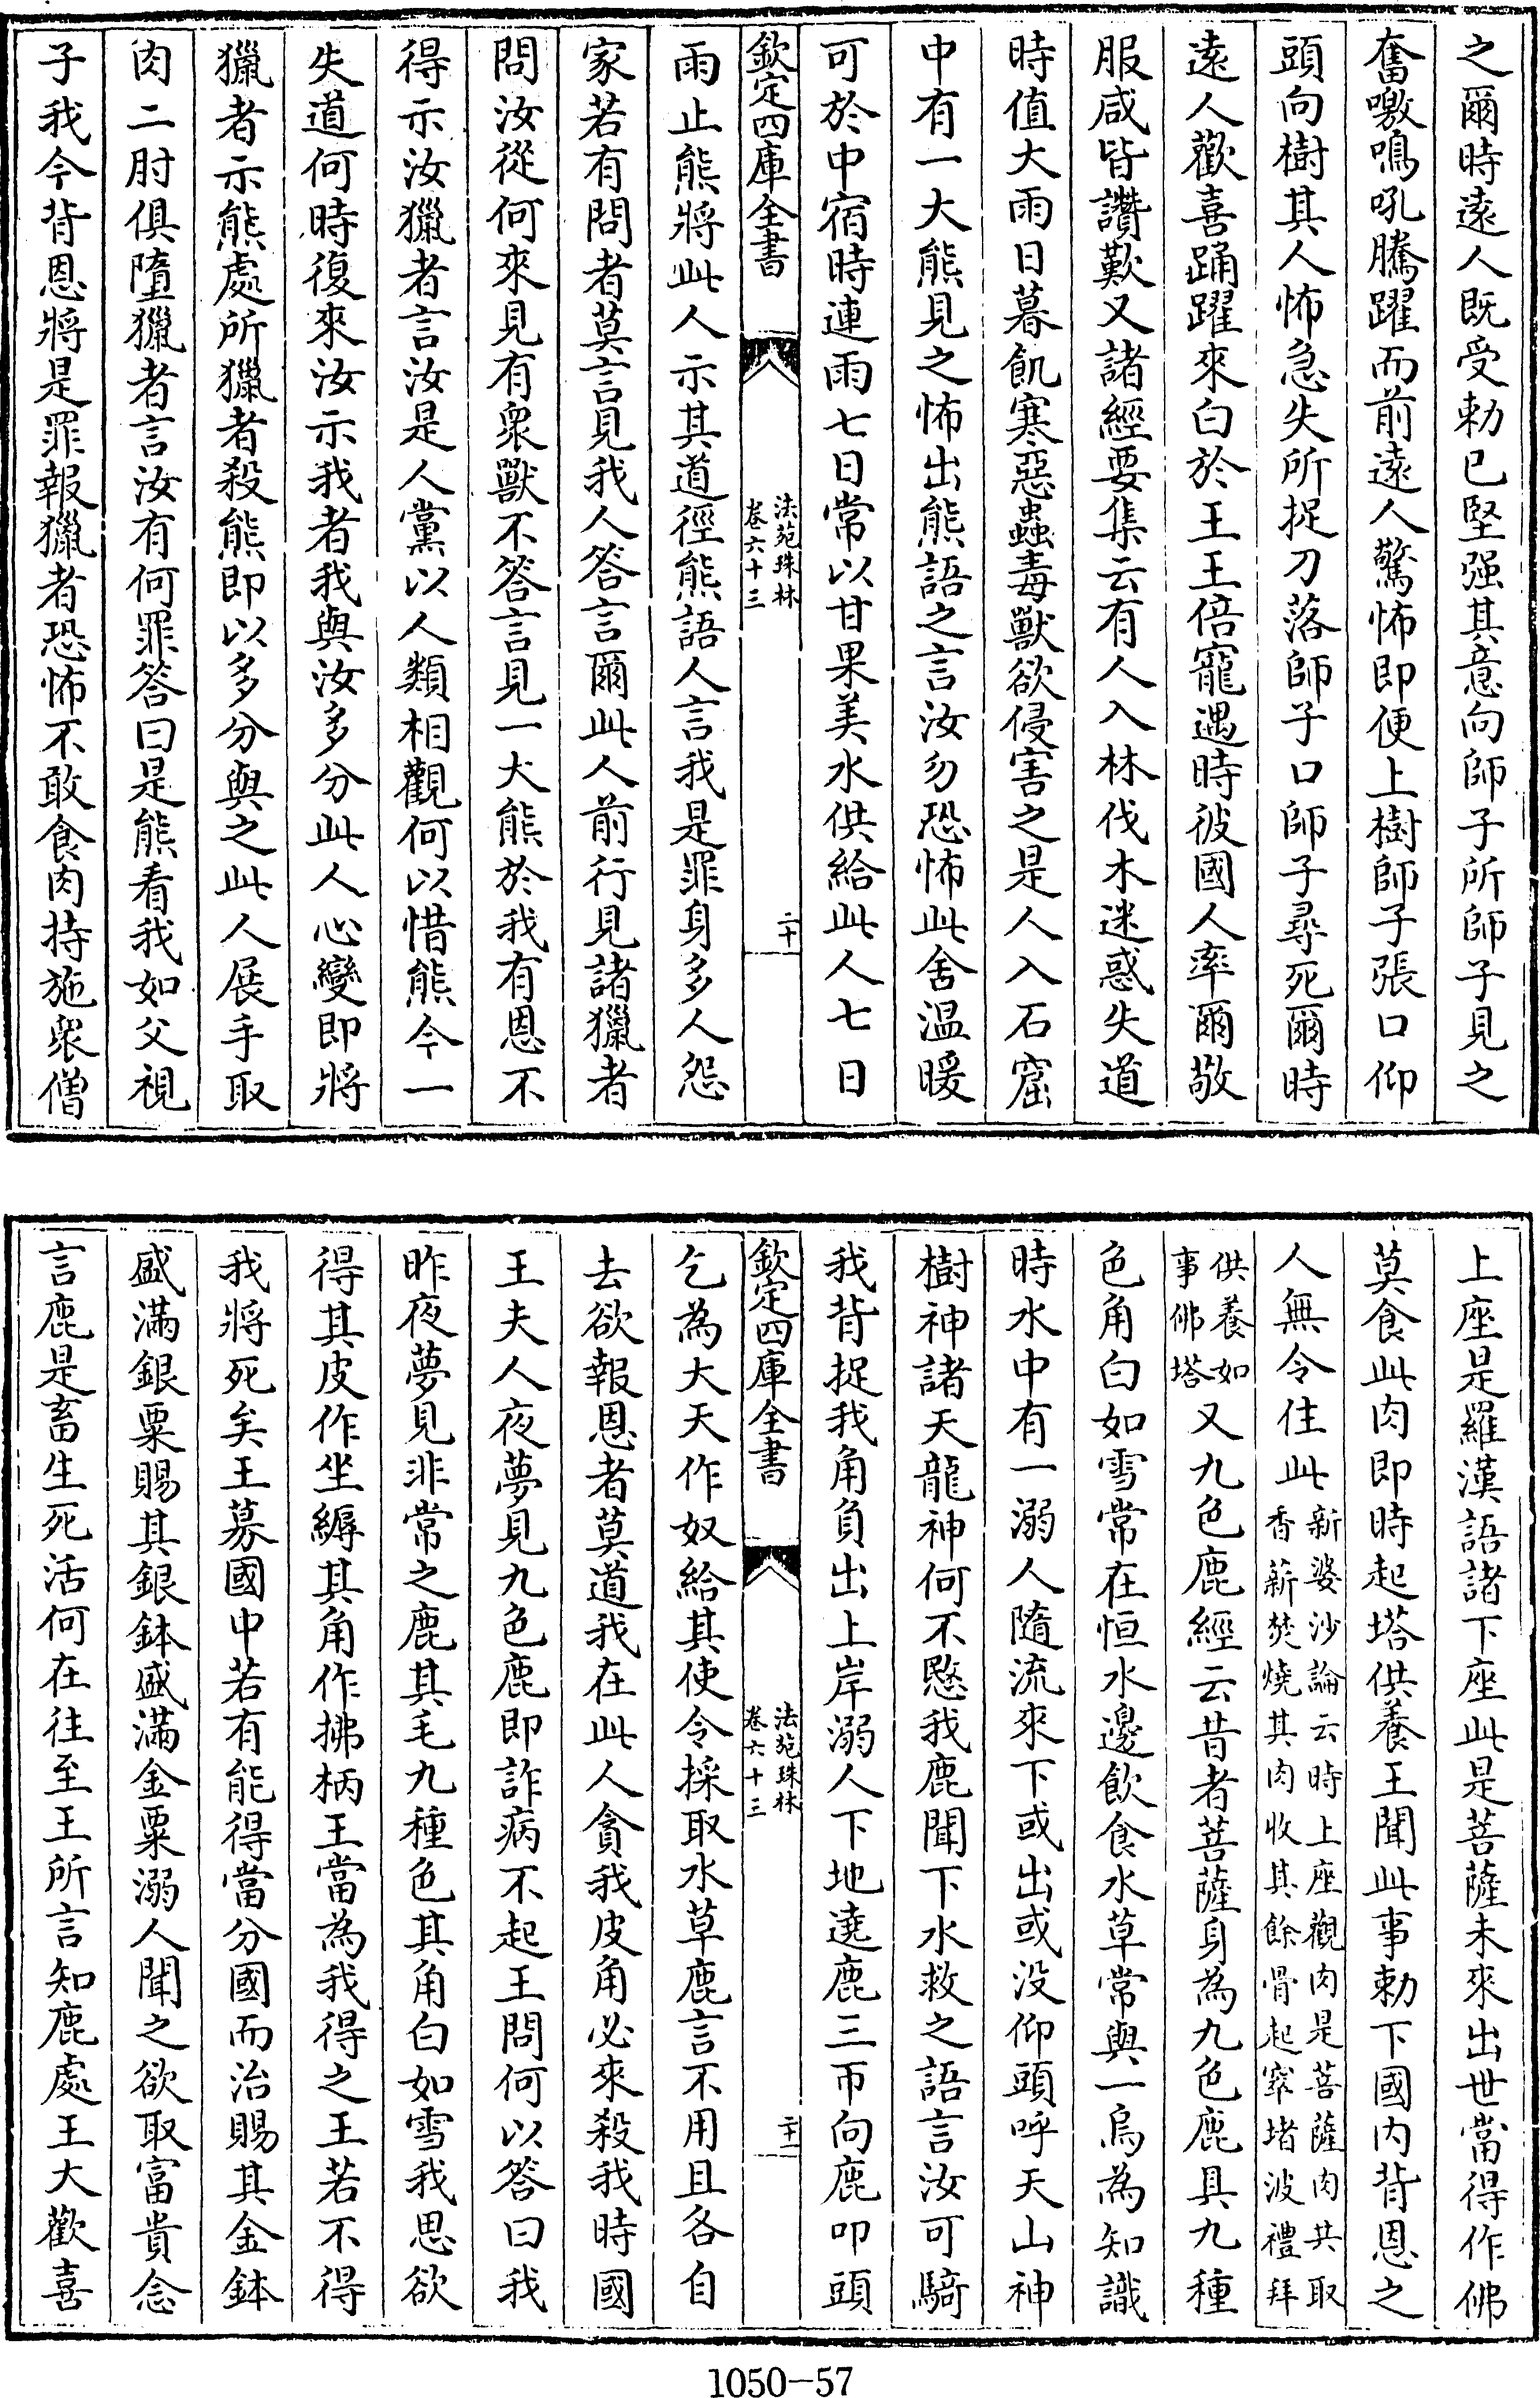 之爾時遠人既受勅已堅强其意向師子所師子見之
奮噭鳴吼騰躍而前遠人驚怖即便上樹師子張口仰
頭向樹其人怖急失所捉刀落師子口師子尋死爾時
遠人歡喜踊躍來白於王王倍寵遇時彼國人率爾敬
服咸皆讚歎又諸經要集云有人入林伐木迷惑失道
時值大雨日暮飢寒惡蟲毒獸欲侵害之是人入石窟
中有一大熊見之怖出熊語之言汝勿恐怖此舍温暖
可於中宿時連雨七日常以甘果美水供給此人七日
欽定四庫全書
法苑珠林
卷六十三
二十
雨止熊將此人示其道徑熊語人言我是罪身多人怨
家若有問者莫言見我人答言爾此人前行見諸獵者
問汝從何來見有衆獸不答言見一大熊於我有恩不
得示汝獵者言汝是人黨以人類相觀何以惜熊今一
失道何時復來汝示我者我與汝多分此人心變即將
獵者示熊處所獵者殺熊即以多分與之此人展手取
肉二肘俱墮獵者言汝有何罪答曰是熊看我如父視
子我今背恩將是罪報獵者恐怖不敢食肉持施衆僧
上座是羅漢語諸下座此是菩薩未來出世當得作佛
莫食此肉即時起塔供養王聞此事勅下國内背恩之
人無令住此新婆沙論云時上座觀肉是菩薩肉共取
香薪焚燒其肉收其餘骨起窣堵波禮拜
供養如
事佛塔又九色鹿經云昔者菩薩身為九色鹿具九種
色角白如雪常在恒水邊飲食水草常與一烏為知識
時水中有一溺人隨流來下或出或没仰頭呼天山神
樹神諸天龍神何不愍我鹿聞下水救之語言汝可騎
我背捉我角負出上岸溺人下地遶鹿三帀向鹿叩頭
欽定四庫全書
法苑珠林
卷六十三
二十一
乞為大天作奴給其使令採取水草鹿言不用且各自
去欲報恩者莫道我在此人貪我皮角必來殺我時國
王夫人夜夢見九色鹿即詐病不起王問何以答曰我
昨夜夢見非常之鹿其毛九種色其角白如雪我思欲
得其皮作坐縟其角作拂柄王當為我得之王若不得
我將死矣王募國中若有能得當分國而治賜其金鉢
盛滿銀粟賜其銀鉢盛滿金粟溺人聞之欲取富貴念
言鹿是畜生死活何在往至王所言知鹿處王大歡喜
1050-57